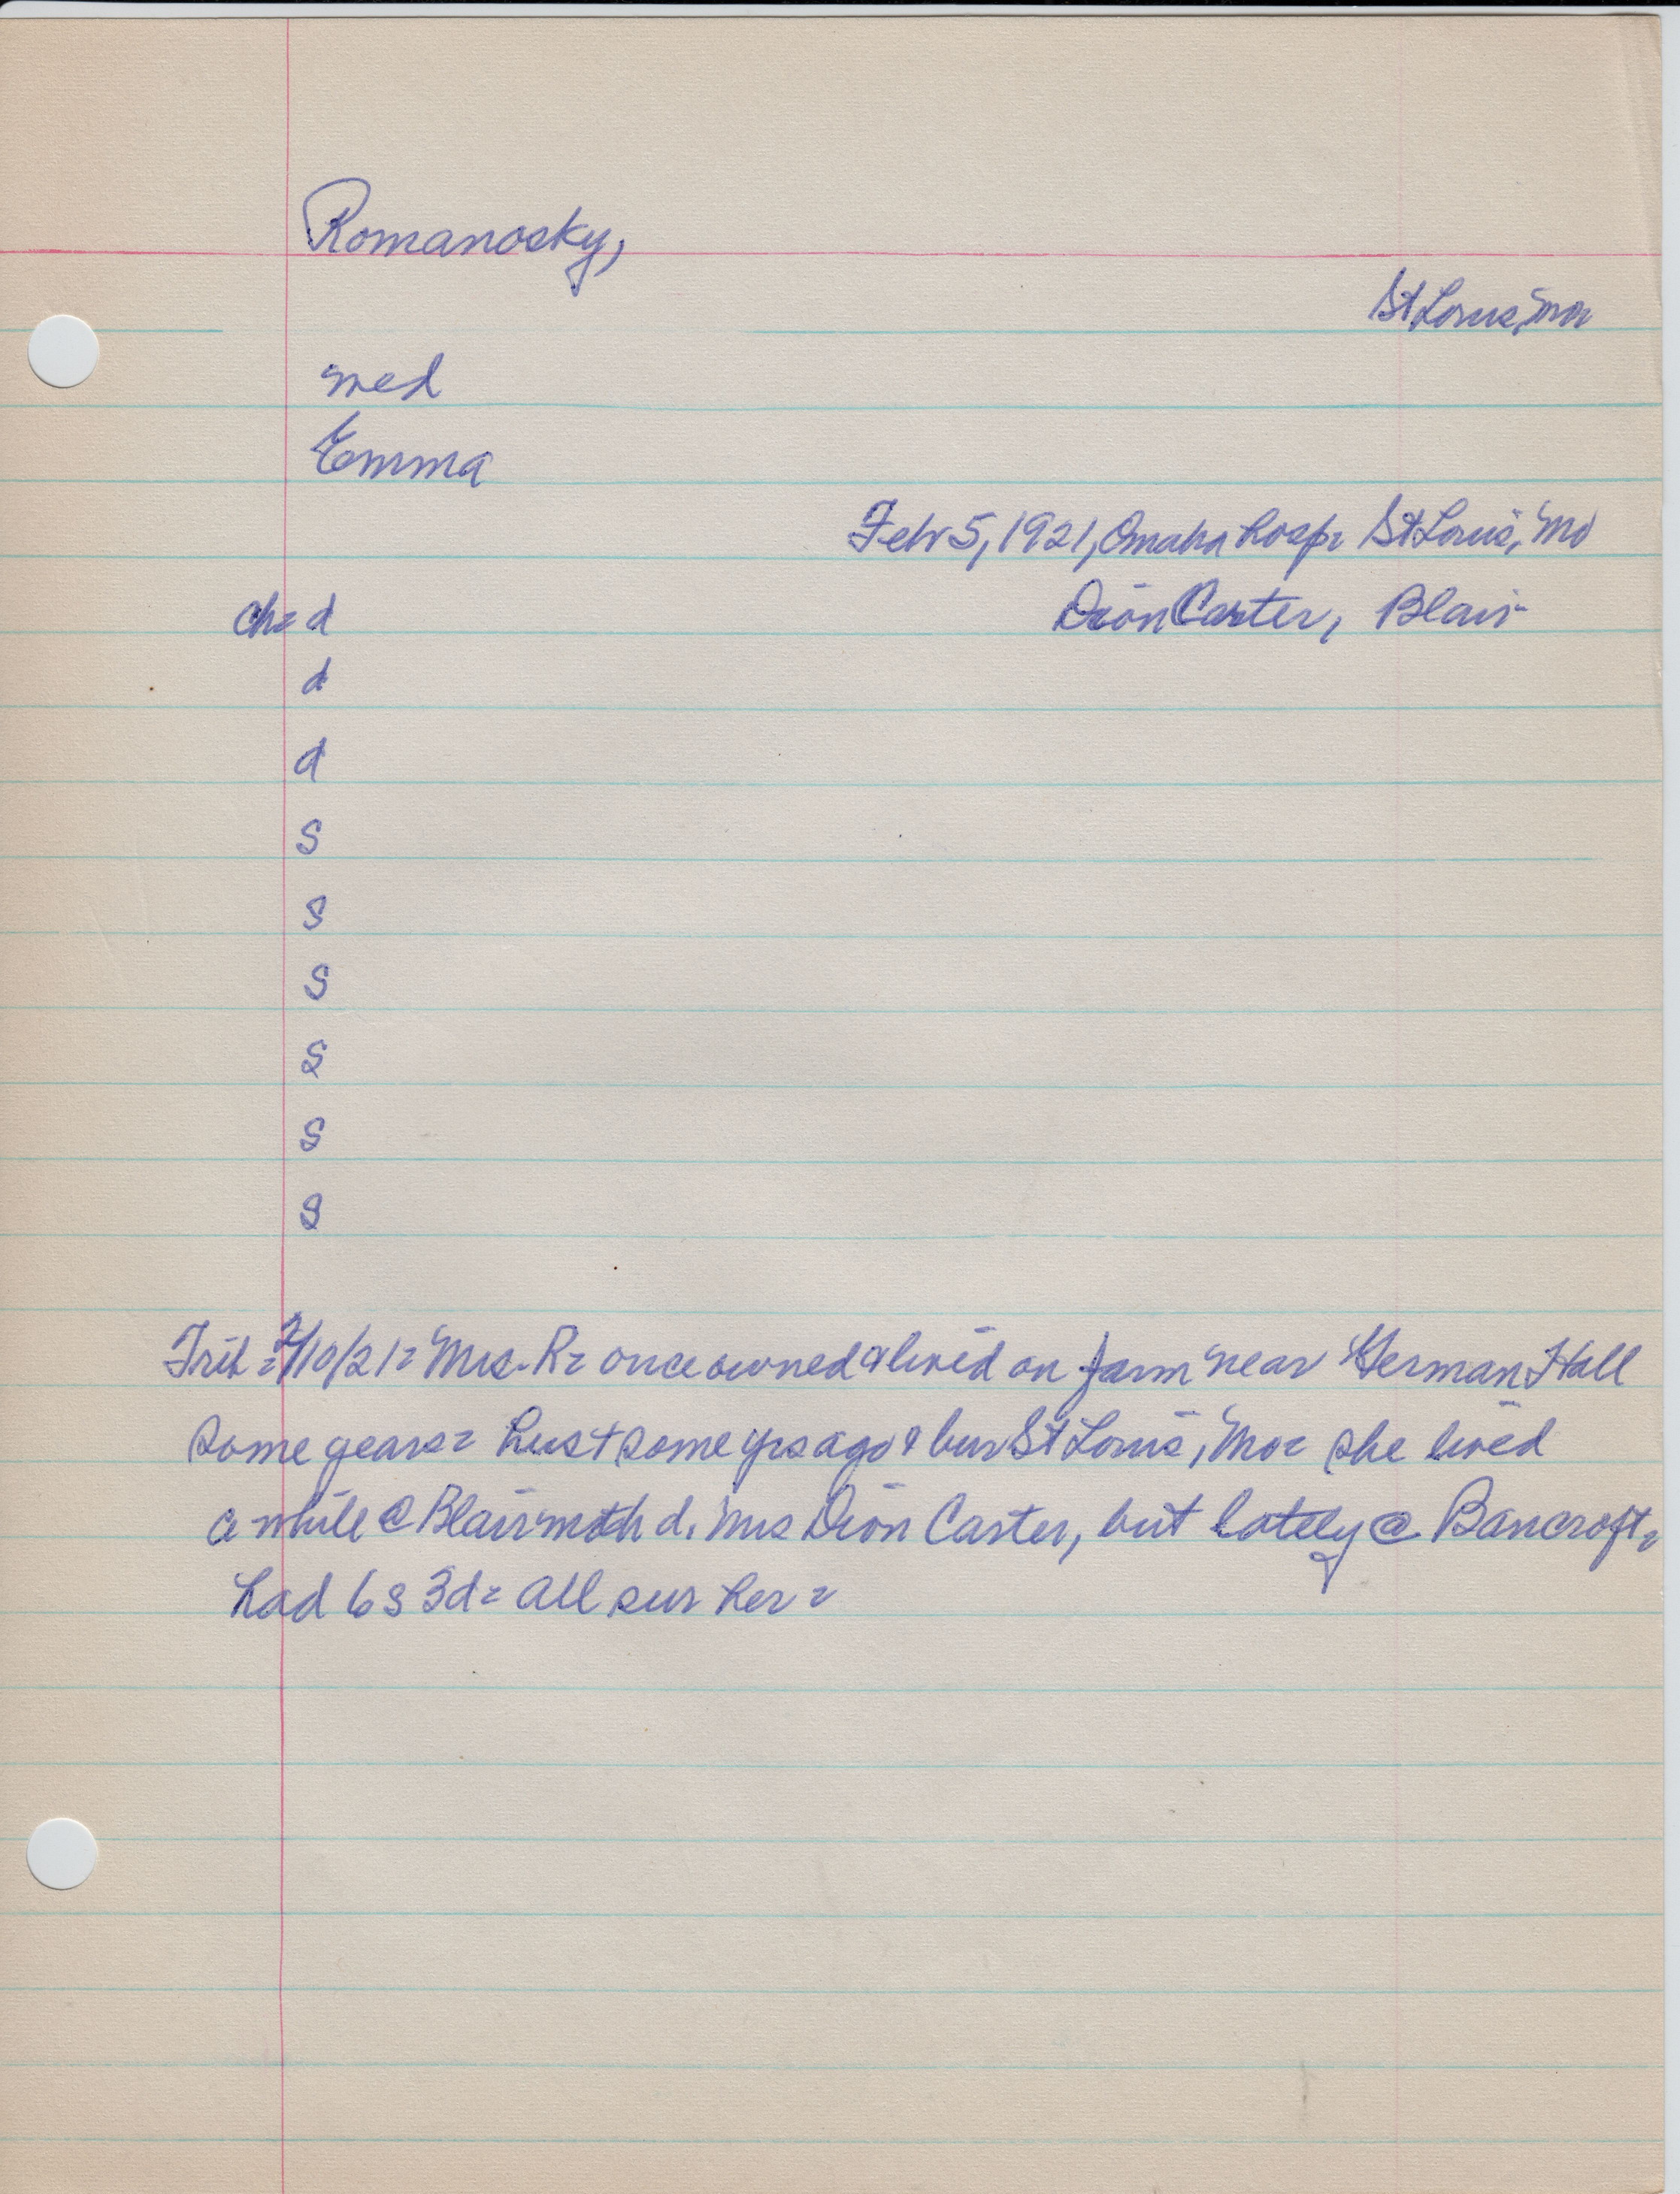 Romanosky,
St Louis, Mo
med
Emma
Feb 5, 1921, Omaha hosp= St Louis, Mo
ch= d Dion Carter, Blair
d
d
s
s
s
s
s
s
Trib= 2/10/21= Mrs. R= once owned & lived on farm near German Hall
some years= hus + some yrs ago & bur St Louis, Mo= she lived
a while @ Blair with d. Mrs Dion Carter, but lately @ Bancroft=
had 6 s 3d= all sur her=